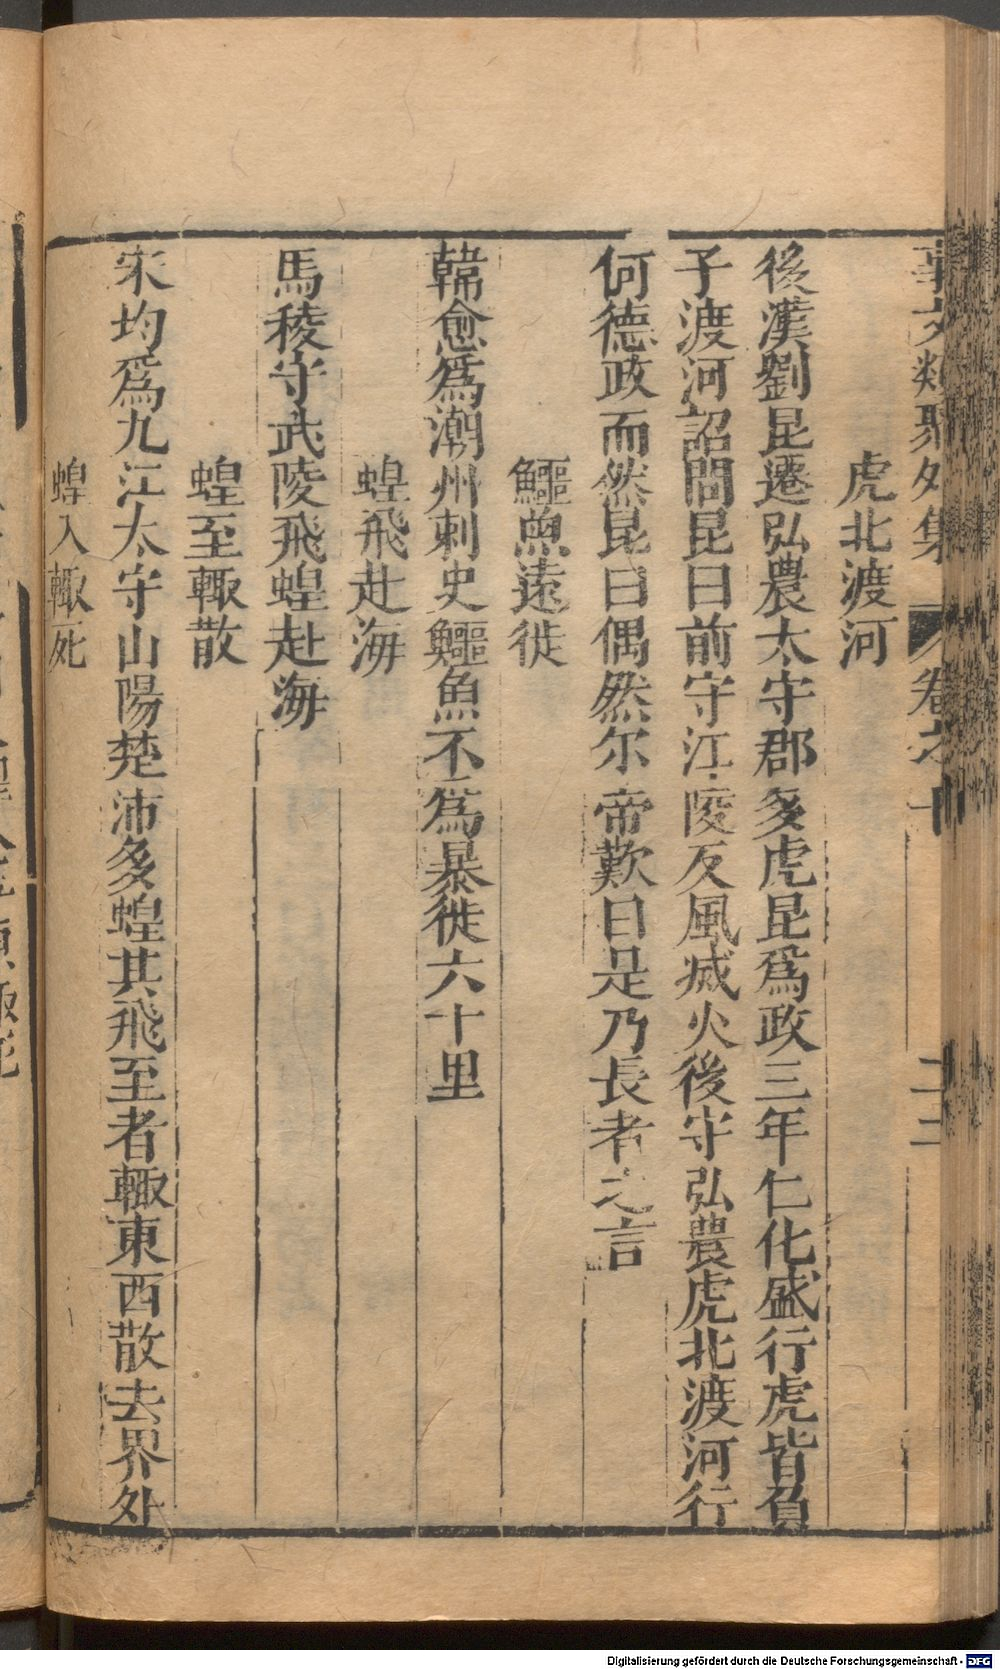 事文類聚外集 卷之十 二二
虎北渡河
後漢劉昆遷弘農太守郡多虎昆爲政三年仁化盛行虎皆負
子渡河詔問昆曰前守江陵反風滅火後守弘農虎北渡河行
何德政而然昆曰偶然尔帝歎曰是乃長者之言
鱷魚遠徙
韓愈爲潮州刺史鱷魚不爲暴徙六十里
蝗飛赴海
馬稜守武陵飛蝗赴海
蝗至輙散
宋均爲九江太守山陽楚沛多蝗其飛至者輙東西散去界外
蝗入輙死
Digitalisierung gefördert durch die Deutsche Forschungsgemeinschaft - DFG